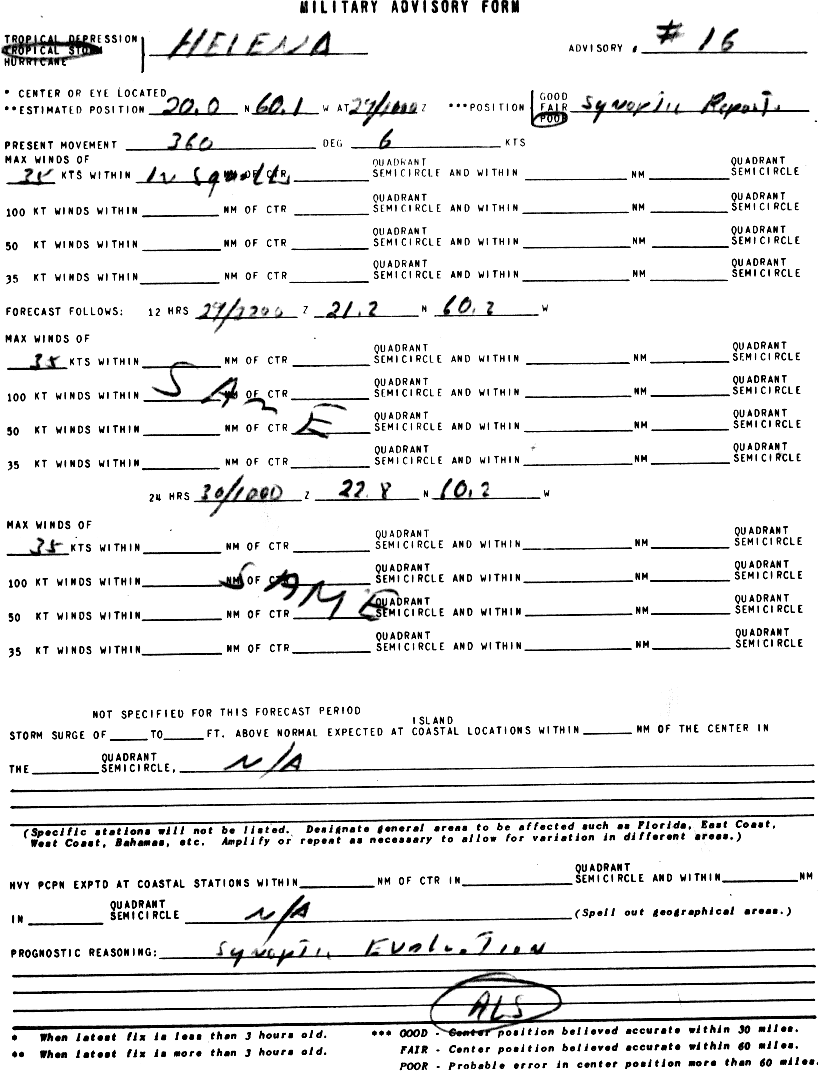 MILITARY ADVISORY FORM
TROPICAL DEPRESSION
TROPICAL STORM HELENA ADVISORY # 16
HURRICANE
* CENTER OR EYE LOCATED
**ESTIMATED POSITION 20.0 N 60.1 W AT 29/1000 Z ***POSITION GOOD FAIR POOR Synoptic Report.
PRESENT MOVEMENT 360 DEG 6 KTS
MAX WINDS OF
35 KTS WITHIN In Squalls NM OF CTR QUADRANT SEMICIRCLE AND WITHIN NM QUADRANT SEMICIRCLE
100 KT WINDS WITHIN NM OF CTR QUADRANT SEMICIRCLE AND WITHIN NM QUADRANT SEMICIRCLE
50 KT WINDS WITHIN NM OF CTR QUADRANT SEMICIRCLE AND WITHIN NM QUADRANT SEMICIRCLE
35 KT WINDS WITHIN NM OF CTR QUADRANT SEMICIRCLE AND WITHIN NM QUADRANT SEMICIRCLE
FORECAST FOLLOWS: 12 HRS 29/2200 Z 21.2 N 60.2 W
MAX WINDS OF
35 KTS WITHIN NM OF CTR QUADRANT SEMICIRCLE AND WITHIN NM QUADRANT SEMICIRCLE
100 KT WINDS WITHIN SAME NM OF CTR QUADRANT SEMICIRCLE AND WITHIN NM QUADRANT SEMICIRCLE
50 KT WINDS WITHIN NM OF CTR QUADRANT SEMICIRCLE AND WITHIN NM QUADRANT SEMICIRCLE
35 KT WINDS WITHIN NM OF CTR QUADRANT SEMICIRCLE AND WITHIN NM QUADRANT SEMICIRCLE
24 HRS 30/1000 Z 22.8 N 60.2 W
MAX WINDS OF
35 KTS WITHIN NM OF CTR QUADRANT SEMICIRCLE AND WITHIN NM QUADRANT SEMICIRCLE
100 KT WINDS WITHIN NM OF CTR SAME QUADRANT SEMICIRCLE AND WITHIN NM QUADRANT SEMICIRCLE
50 KT WINDS WITHIN NM OF CTR QUADRANT SEMICIRCLE AND WITHIN NM QUADRANT SEMICIRCLE
35 KT WINDS WITHIN NM OF CTR QUADRANT SEMICIRCLE AND WITHIN NM QUADRANT SEMICIRCLE
NOT SPECIFIED FOR THIS FORECAST PERIOD
STORM SURGE OF TO FT. ABOVE NORMAL EXPECTED AT ISLAND COASTAL LOCATIONS WITHIN NM OF THE CENTER IN
THE QUADRANT SEMICIRCLE, N/A
(Specific stations will not be listed. Designate general areas to be affected such as Florida, East Coast,
West Coast, Bahamas, etc. Amplify or repeat as necessary to allow for variation in different areas.)
HVY PCPN EXPTD AT COASTAL STATIONS WITHIN NM OF CTR IN QUADRANT SEMICIRCLE AND WITHIN NM
IN QUADRANT SEMICIRCLE N/A (Spell out geographical areas.)
PROGNOSTIC REASONING: Synoptic Evaluation
ALS
* When latest fix is less than 3 hours old. *** GOOD - Center position believed accurate within 30 miles.
** When latest fix is more than 3 hours old. FAIR - Center position believed accurate within 60 miles.
POOR - Probable error in center position more than 60 miles.